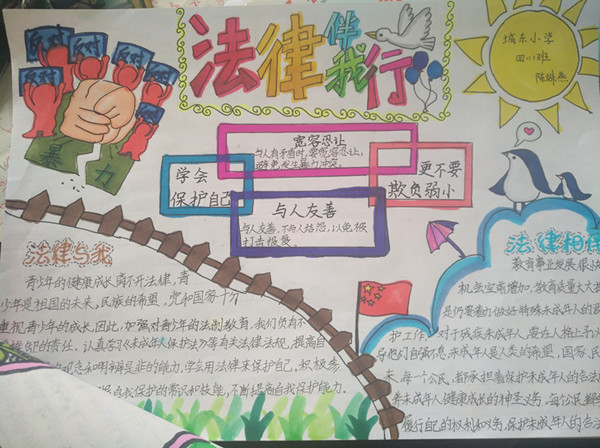 反对
反对
反对
反对
反对
暴力
法律伴我行
城东小学
四(1)班
宽容忍让
与人有矛盾时,要宽容忍让,
避免发生暴力冲突。
学会
保护自己
更不要
欺负弱小
与人友善
与人友善,不与人结怨,以免被
打击报复。
法律与我
青少年的健康成长离不开法律,青
少年是祖国的未来,民族的希望。党和国家十分
重视青少年的成长。因此,加强对青少年的法制教育,我们负有不
的责任。认真学习《未成年人保护法》等有关法律法规,提高自
和明辨是非的能力,学会用法律来保护自己,积极参
自我保护的常识和技能,不断提高自我保护能力。
法律相伴
教育事业发展很
机会空前增加,教育质量大大提
是仍要着力做好特殊未成年人的
护工作。对于残疾未成年人要在人格上予以
导他们自强不息。未成年人是人类的希望,国家、民
来,每个公民,都承担着保护未成年人的合法
养未成年人健康成长的神圣义务,每个公民都
履行自己的权利和义务,保护未成年人的合法